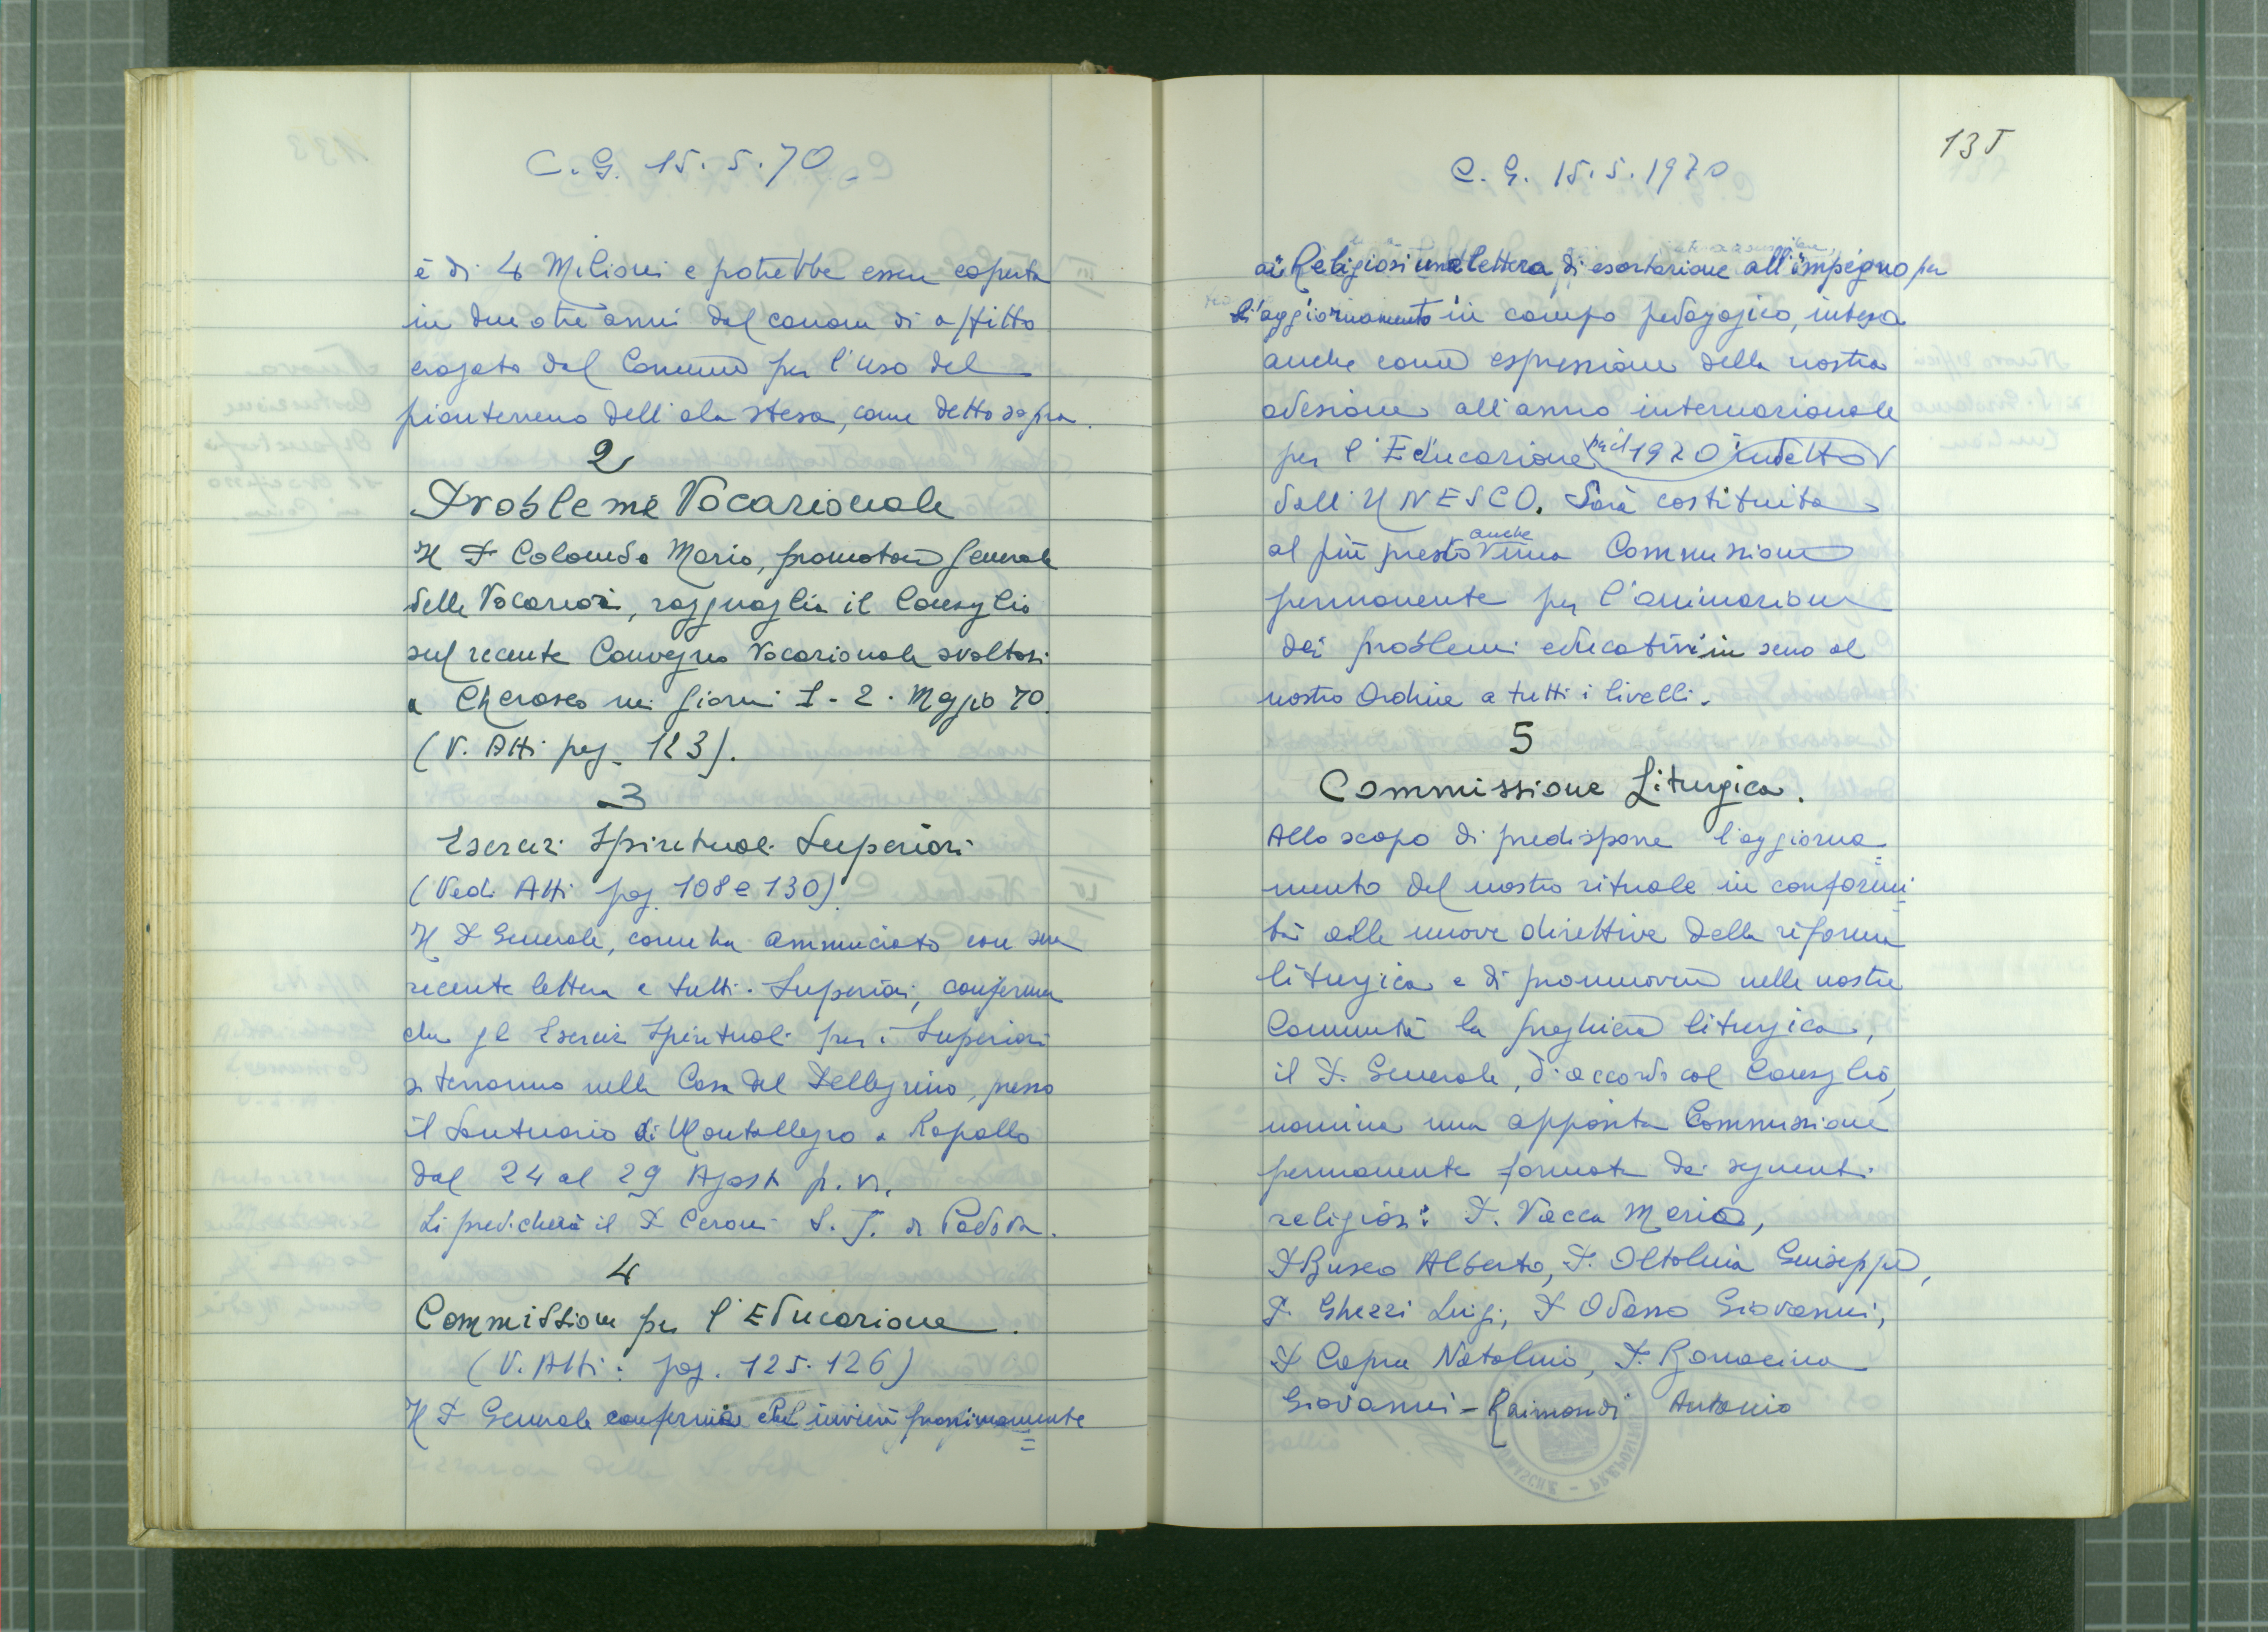 C. G. 15. 5. 70
è di 4 Milioni e potrebbe essere coperta
in due o tre anni dal canone di affitto
erogato dal Comune per l'uso del
pianterreno dell'ala stessa, come detto sopra.
2
Probleme Vocazionale
Il P. Colombo Mario, promotore generale
delle Vocazioni, ragguaglia il Consiglio
sul recente Convegno Vocazionale svoltosi
a Cherasco nei giorni 1-2. Maggio 70.
(V. Atti pag. 123).
3
Esercizi Spirituali Superiori
(Vedi Atti pag. 108 e 130)
Il P Generale, come ha annunciato con sua
recente lettera a tutti i Superiori, conferma
che gli Esercizi Spirituali per i Superiori
si terranno nella Casa del Pellegrino, presso
il Santuario di Montallegro a Rapallo
dal 24 al 29 Agosto p. v.
Li predicherà il P Ceroni S. J. di Padova.
4
Commissione per l'Educazione.
(V. Atti: pag. 125. 126)
Il P Generale conferma che invierà prossimamente
135
C. G. 15. 5. 1970
ai Religiosi una lettera di esortazione all'impegno per
l'aggiornamento in campo pedagogico, intesa
anche come espressione della nostra
adesione all'anno internazionale
per l'Educazione per il 1970 indetto
dall'UNESCO. Sarà costituita
al più presto anche una Commissione
permanente per l'animazione
dei problemi educativi in seno al
nostro Ordine a tutti i livelli.
5
Commissione Liturgica.
Allo scopo di predisporre l'aggiorna=
mento del nostro rituale in conformi=
tà alle nuove direttive della riforma
liturgica e di promuovere nelle nostre
Comunità la preghiera liturgica,
il P. Generale, d'accordo col Consiglio,
nomina una apposita Commissione
permanente formata dai seguenti
religiosi: P. Vacca Mario,
P Busco Alberto, P. Oltolina Giuseppe,
P. Ghezzi Luigi, P Odasso Giovanni,
P Capra Natalino, P. Bonacina
Giovanni - Raimondi Antonio